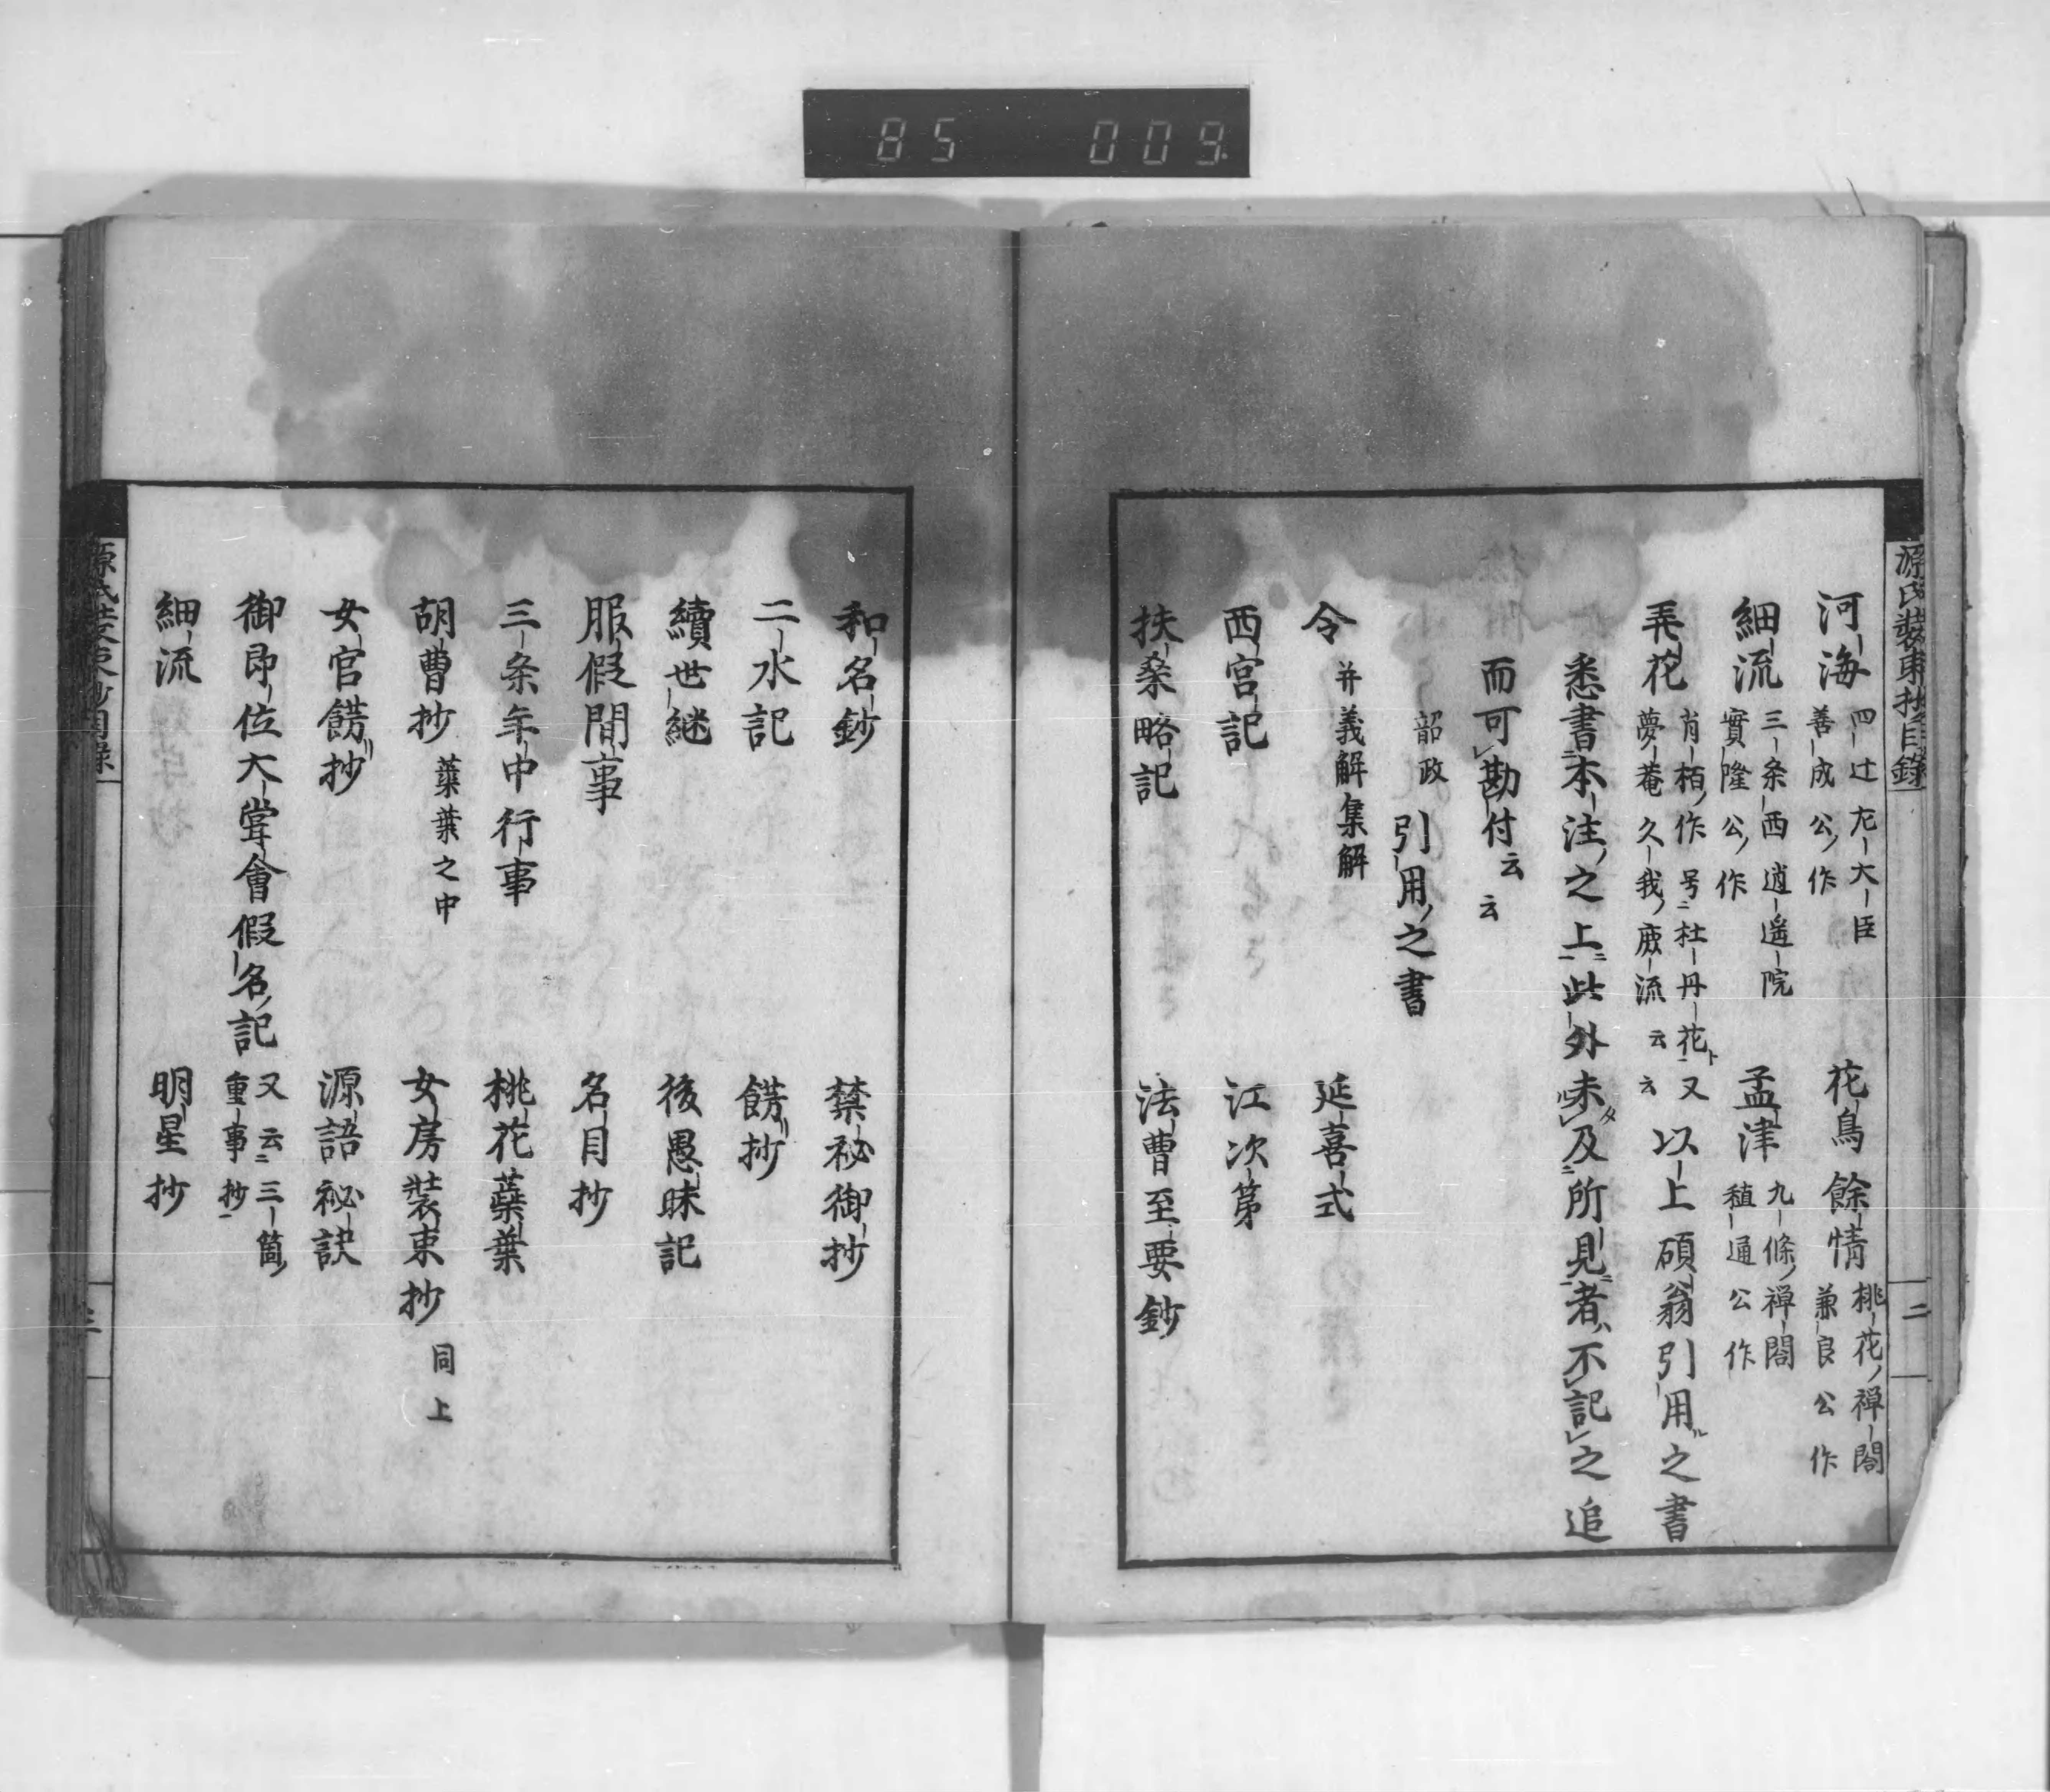 85 009
源氏装束抄目録
二
河海 四辻左大臣
善成公作
花鳥餘情 桃花禅閤
兼良公作
細流 三条西逍遥院
實隆公作
孟津 九條禅閤
稙通公作
弄花 肖柏作号ニ牡丹花ト又
夢菴久我庶流云云
以上碩翁引用之書
悉書本注之上此外未及所見者不記之追
而可勘付云云
韶政引用之書
令 并義解集解
延喜式
西宮記
江次第
扶桑略記
法曹至要鈔
和名鈔
禁秘御抄
二水記
餝抄
續世継
後愚昧記
服假間事
名目抄
三条年中行事
桃花蘂葉
胡曹抄 蘂葉之中
女房装束抄 同上
女官餝抄
源語秘訣
御即位大嘗會假名記 又云三箇
重事抄
細流
明星抄
源氏装束抄目録
三